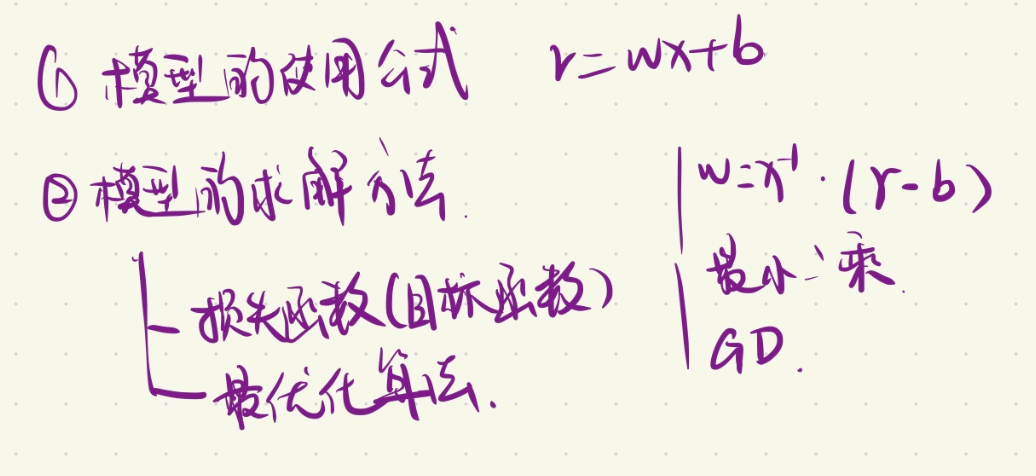 ① 模型的使用公式 r=wx+b
② 模型的求解方法.
损失函数(目标函数)
最优化算法.
w=x⁻¹·(r-b)
最小二乘.
GD.